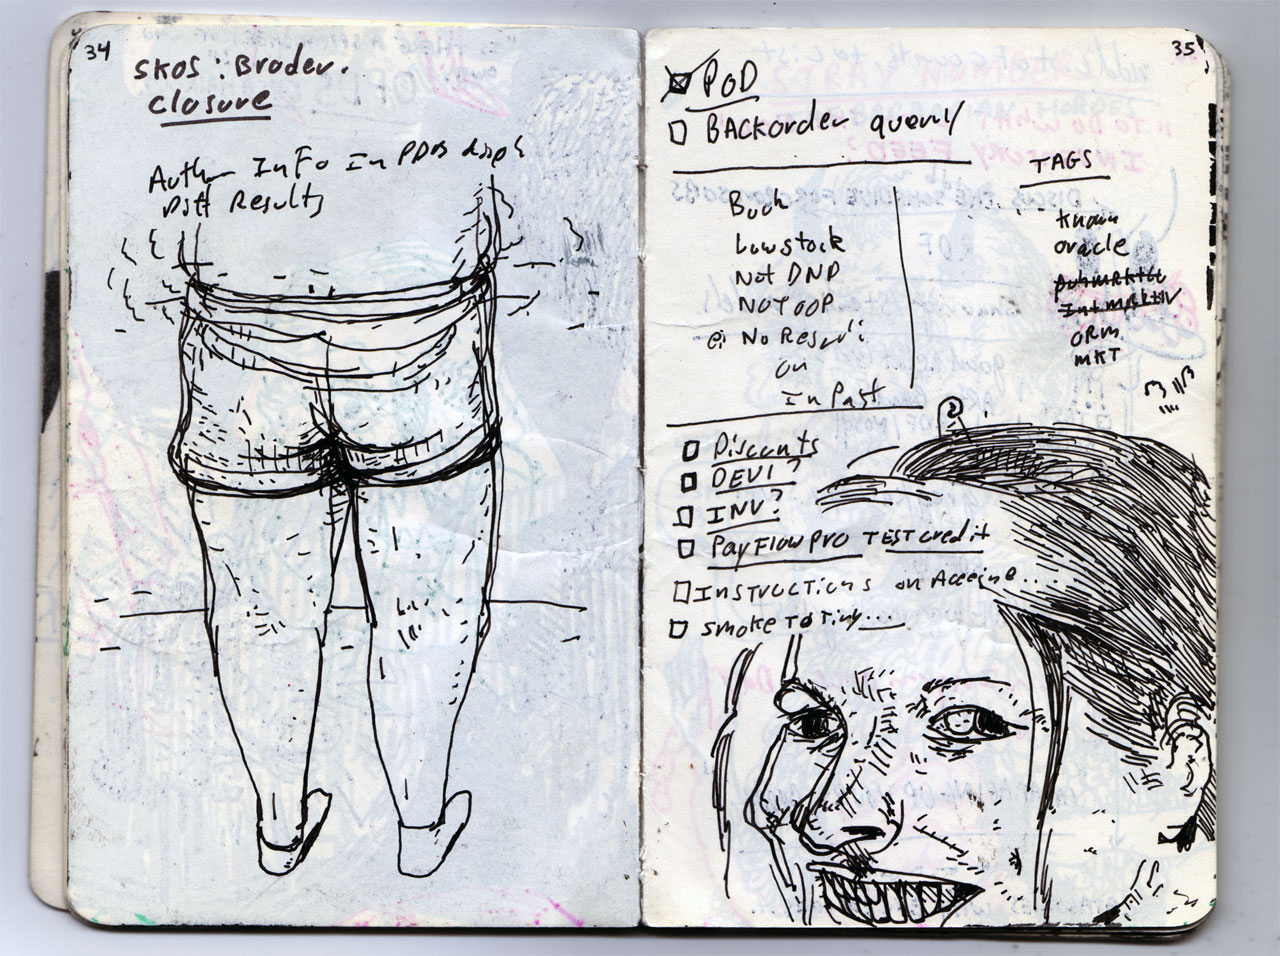 34
SKOS : Broder.
closure
Auth InFo In PDOS
Results
35
POD
BACKorder query
TAGS
Book
Lowstock
Not DND
NOT OOP
No Result
on
In Past
known
oracle
ORM
MKT
Discounts
DEV1?
INV?
PayFlow PRO TEST credit
Instructions on
Smoke To Tiny...